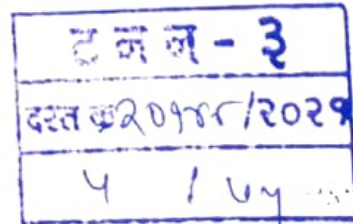 ट न न - ३
दस्त क्र २०१४४/२०२१
५ / ५५